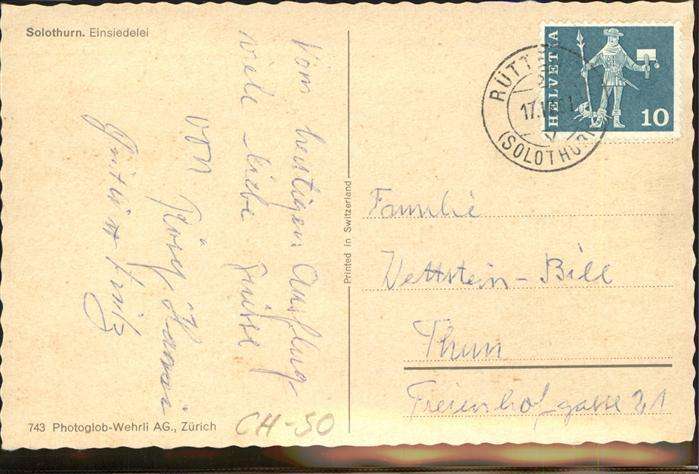 Solothurn. Einsiedelei
Vom heutigen Ausflug
viele liebe Grüsse
von Jürg Hanni
Fritz
743 Photoglob-Wehrli AG., Zürich
CH-50
Printed in Switzerland
RÜTT
17.
(SOLOTHURN)
HELVETIA
10
Familie
Wettstein-Bill
Thun
Freienhofgasse 21